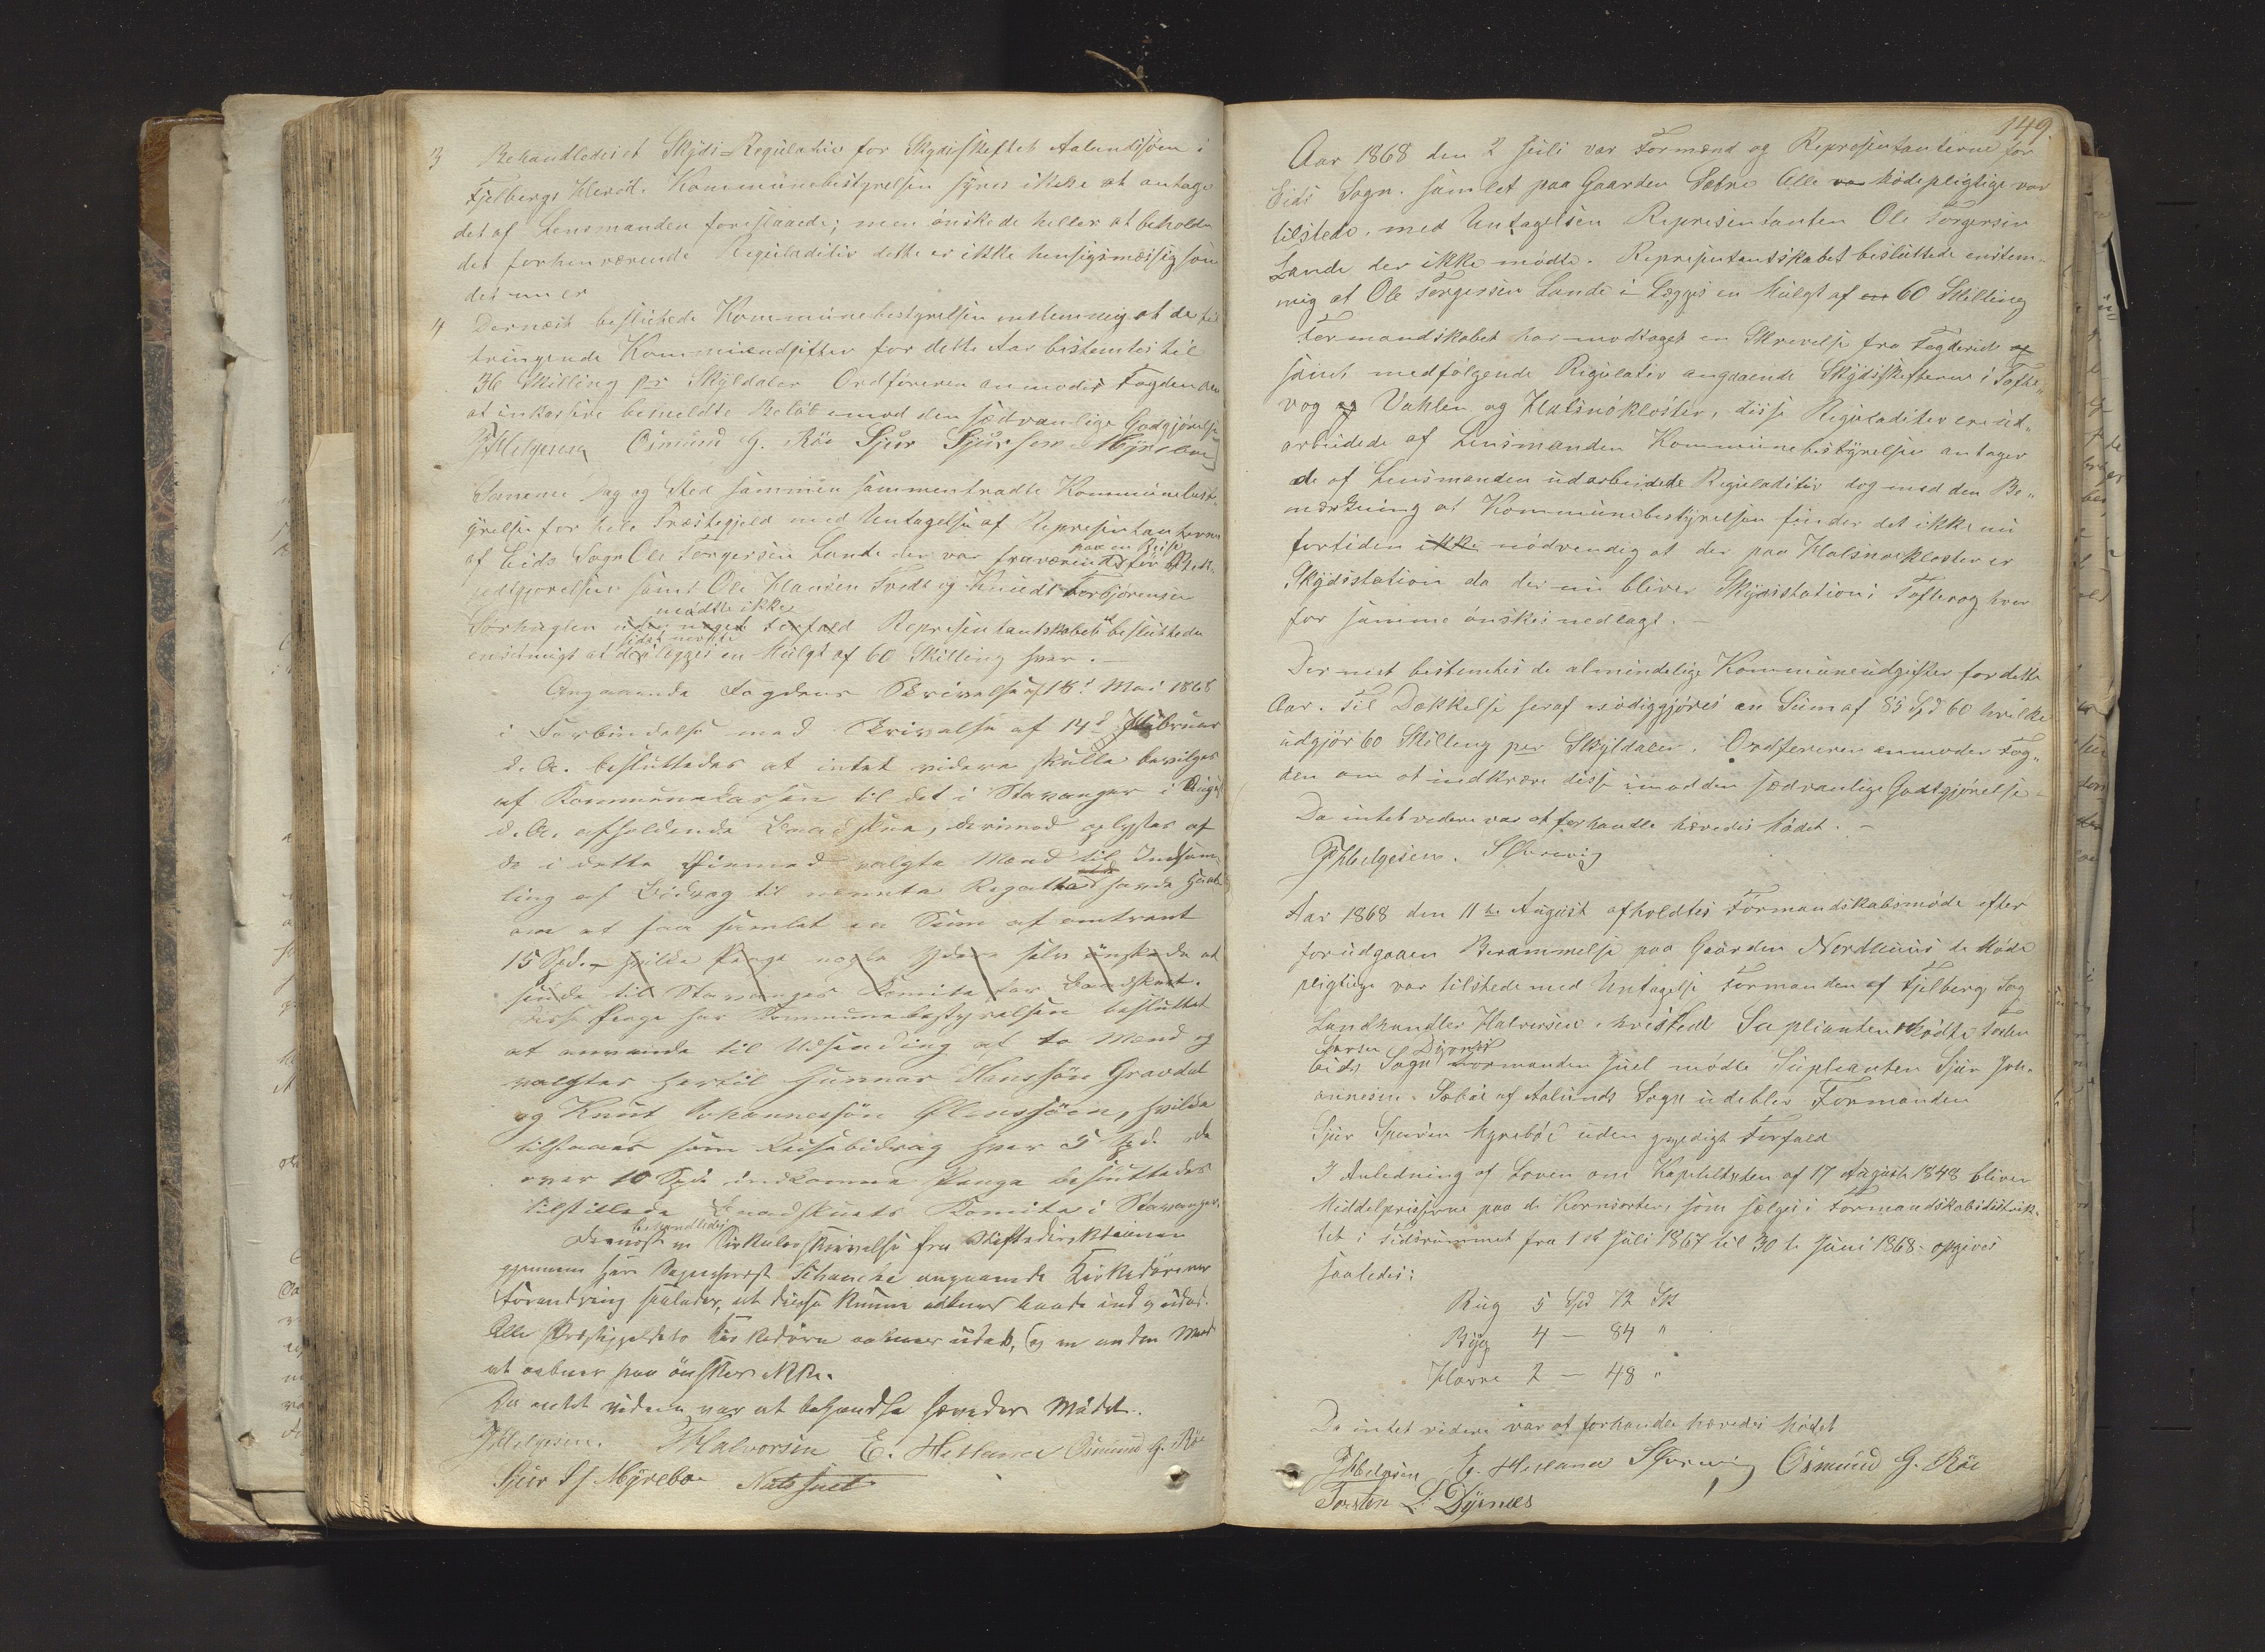 3 Behandledes et Skyds-Regulativ for Skydsskiftet Aalundsjöen i
Fjelbergs Herod. Kommunebestyrelsen synes ikke at antage
det af Lensmanden forestaaede; men önskede heller at beholde
det forhenværende Reguladitiv dette er ikke hensigsmæssig som
det nu er
4 Dernæst besluttede Kommunebestyrelsen enstemmig at de til
trengende Kommuneudgifter for dette Aar bestemtes til
36 Skilling pr Skyldaler Ordföreren anmodes Fogden om
at inkassere bemeldte Belöb imod den sædvanlige Godgjörelse
JHelgesen Osmund G. Röe Sjur Sjursen Myrebøe
Samme Dag og Sted sammen sammentraadte Kommunebest-
yrelse for hele Præstegjeld med Untagelse af Representanterne
af Eids Sogn Ole Torgersen Lande der var fraværende paa en Reise for
samt Ole Hansen Tvedt og Knudt Torbjörnsen
Sörhuglen uden noget Forfald mödte ikke Representantskabet besluttede
enstemigt at de sidst nevnte ilegges en Mulgt af 60 Skilling hver.
Angaaende Fogdens Skrivelse af 18d Mai 1868
i Forbindelse med Skrivelse af 14d Februar
d. A. besluttedes at intet videre skulle bevilges
af Kommunekassen til det i Stavanger i August
d. A. afholdende Landskue, derimod oplystes af
de i dette Öiemed valgte Mænd til Indsam-
ling af Bidrag til nævnte Regatta at de havde Haab
om at faa samlet en Sum af omtrent
15 Spd. hvilke Penge nogle Ydere selv önskede at
sende til Stavanger Komite for Landskuet.
Disse Penge har Kommunebestyrelsen besluttet
at anvende til Udsending af to Mænd og
valgtes hertil Gunnar Hanssön Gravdal
og Knut Johannessön Ølenssjöen, hvilke
tilstaaes som Reisebidrag hver 5 Spd. De
over 10 Spd. indkomne Penge besluttedes
tilstillede Landskuets Komite i Stavanger.
Dernæst behandledes en Sirkulærskrivelse fra Stiftsdirektionen
gjennem Herr Sognepræst Schanche angaaende Kirkedörenes
Forandring saaledes, at disse kunne aabnes baade ind og udad.
Alle Præstegjeldets Kirkedöre aabner udad, og en anden Maade
at aabnes paa önskes ikke.
Da intet videre var at behandle hævedes Mödet.
JHelgesen. THalvorsen E. Hetland Osmund G. Röe
Sjur Sj Myrebø Nils Juel
149.
Aar 1868 den 2 Juli var Formænd og Representanterne for
Eids Sogn. samlet paa Gaarden Sætre Alle var Mödepligtige var
tilstede, med Untagelsen Representanten Ole Torgersen
Lande der ikke mödte. Representantskabet besluttede enstem-
mig at Ole Torgersen Lande i Lægges en Mulgt af en 60 Skilling
Formandskabet har modtaget en Skrivelse fra Fogderiet og
samt medfölgende Regulativ angaaende Skydsskifterne i Tofte-
vog og Vahlen og Halsnökloster, disse Reguladitev ere ud-
arbeidede af Lensmanden Kommunebestyrelsen antager
de af Lensmanden udarbeidede Reguladitiv dog med den Be-
merkning at Kommunebestyrelsen finder det ikke nu
fortiden ikke nödvendig at der paa Halsnoekloster er
Skydsstation da der nu bliver Skysstation i Toftevog hvor
for samme önskes nedlagt. –
Der nest bestemtes de almindelige Kommuneudgifter for dette
Aar. Til Dekkelse heraf nödiggjöres en Sum af 85 Spd 60 hvilke
udgjör 60 Skilling per Skyldaler. Ordföreren anmoder Fog-
den om at indkræve disse imod den sædvanlige Godtgjörelse –
Da intet videre var at forhandle hævedes Mödet. –
JHelgesen.
Aar 1868 den 11te August afholdtes Formandskabsmöde efter
forudgaaen Berammelse paa Gaarden Nordhuus de Möde
pligtige var tilstede med Untagelse Formanden af Fjelberg Sog
Landhandler Halvorsen hvisted Suplianten Mödte Tosten
Larsen Dyrnes
Eids Sogn Formanden Juel mödte Suplianten Sjur Joh-
annesen Sæböe af Aalunds Sogn udeblev Formanden
Sjur Sjursen Myrebøe uden gyldigt Forfald
I Anledning af Loven om Kapiteltaxten af 17 August 1848 bliver
Middelpriserne paa de Kornsorter, som sælges i Formandskabsdistrik-
tet i Tidsrummet fra 1ste Juli 1867 til 30te Juni 1868 opgives
saaledes:
Rug 5 Spd 72 Sk
Byg 4 — 84 "
Havre 2 — 48 "
Da intet videre var at forhandle hævedes Mödet
JHelgesen E. Hetland Osmund G. Röe
Torsten L. Dyrnæs